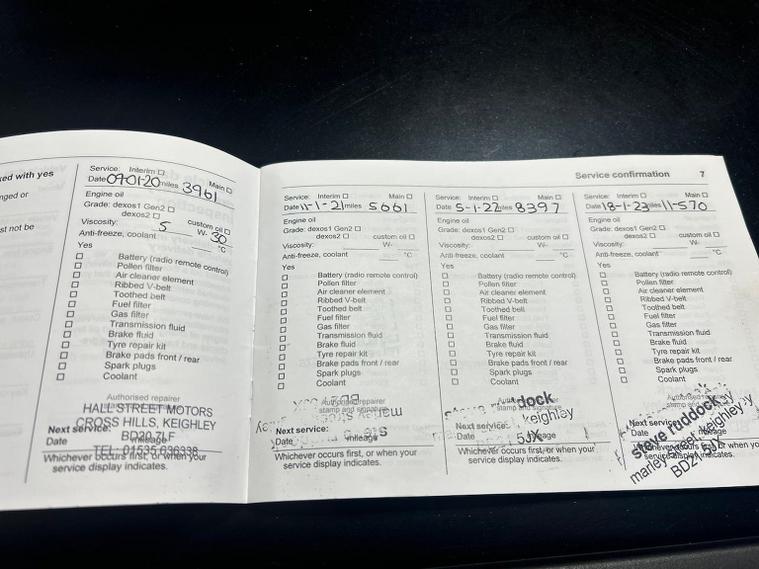 ked with yes
nged or
st not be
Service: Interim □ Main □
Date 07-01-20 miles 3961
Engine oil
Grade: dexos1 Gen2 □
dexos2 □ custom oil □
Viscosity: 5 W- 30
Anti-freeze, coolant °C
Yes
□ Battery (radio remote control)
□ Pollen filter
□ Air cleaner element
□ Ribbed V-belt
□ Toothed belt
□ Fuel filter
□ Gas filter
□ Transmission fluid
□ Brake fluid
□ Tyre repair kit
□ Brake pads front / rear
□ Spark plugs
□ Coolant
Authorised repairer
HALL STREET MOTORS
CROSS HILLS, KEIGHLEY
BD20 7LF
TEL: 01535 636338
Next service:
Date mileage
Whichever occurs first, or when your
service display indicates.
Service confirmation 7
Service: Interim □ Main □
Date 11-1-21 miles 5661
Engine oil
Grade: dexos1 Gen2 □
dexos2 □ custom oil □
Viscosity: W-
Anti-freeze, coolant °C
Yes
□ Battery (radio remote control)
□ Pollen filter
□ Air cleaner element
□ Ribbed V-belt
□ Toothed belt
□ Fuel filter
□ Gas filter
□ Transmission fluid
□ Brake fluid
□ Tyre repair kit
□ Brake pads front / rear
□ Spark plugs
□ Coolant
Authorised repairer
stamp and signature
Next service:
Date mileage
Whichever occurs first, or when your
service display indicates.
Service: Interim □ Main □
Date 5-1-22 miles 8397
Engine oil
Grade: dexos1 Gen2 □
dexos2 □ custom oil □
Viscosity: W-
Anti-freeze, coolant °C
Yes
□ Battery (radio remote control)
□ Pollen filter
□ Air cleaner element
□ Ribbed V-belt
□ Toothed belt
□ Fuel filter
□ Gas filter
□ Transmission fluid
□ Brake fluid
□ Tyre repair kit
□ Brake pads front / rear
□ Spark plugs
□ Coolant
stamp and signature
keighley
5JX
Next service:
Date mileage
Whichever occurs first, or when your
service display indicates.
Service: Interim □ Main □
Date 18-1-23 miles 11-570
Engine oil
Grade: dexos1 Gen2 □
dexos2 □ custom oil □
Viscosity: W-
Anti-freeze, coolant °C
Yes
□ Battery (radio remote control)
□ Pollen filter
□ Air cleaner element
□ Ribbed V-belt
□ Toothed belt
□ Fuel filter
□ Gas filter
□ Transmission fluid
□ Brake fluid
□ Tyre repair kit
□ Brake pads front / rear
□ Spark plugs
□ Coolant
Authorised repairer
stamp and
steve ruddock
marley street keighley
BD21 5JX
Next service:
Date mileage
Whichever occurs first, or when yo
service display indicates.